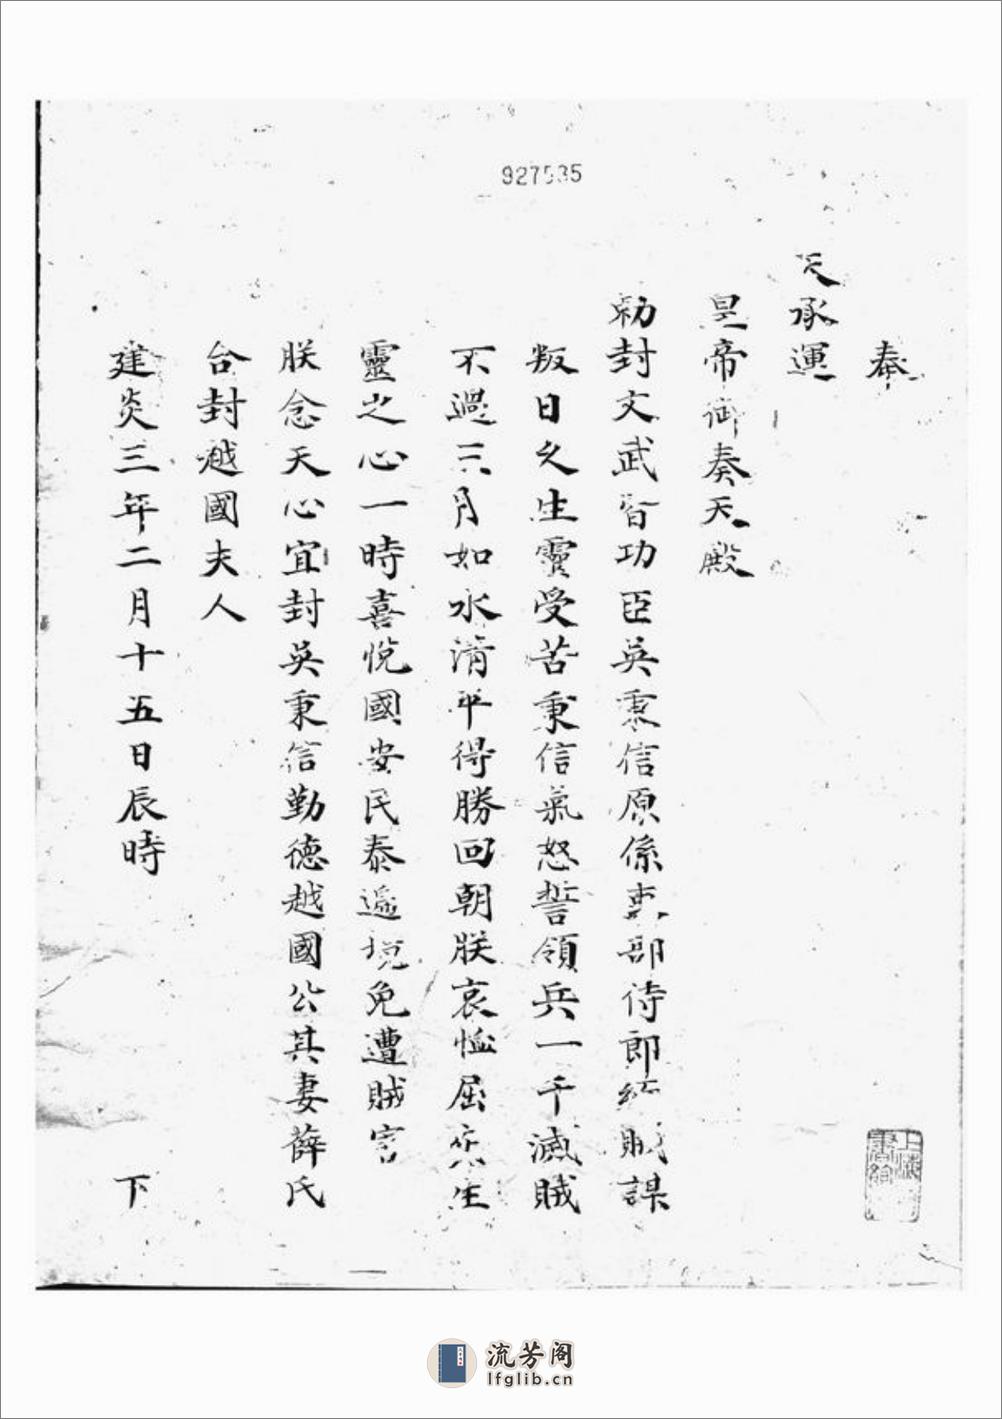 927535
奉
天承運
皇帝御奏天殿
勑封文武智功臣吳秉信原係吏部侍郎紅賊謀
叛日久生靈受苦秉信氣怒誓領兵一千滅賊
不過三月如水清平得勝回朝朕哀恤屈死生
靈之心一時喜悅國安民泰邊境免遭賊害
朕念天心宜封吳秉信勤德越國公其妻薛氏
合封越國夫人
建炎三年二月十五日辰時 下
上海 書館
流芳阁
lfglib.cn